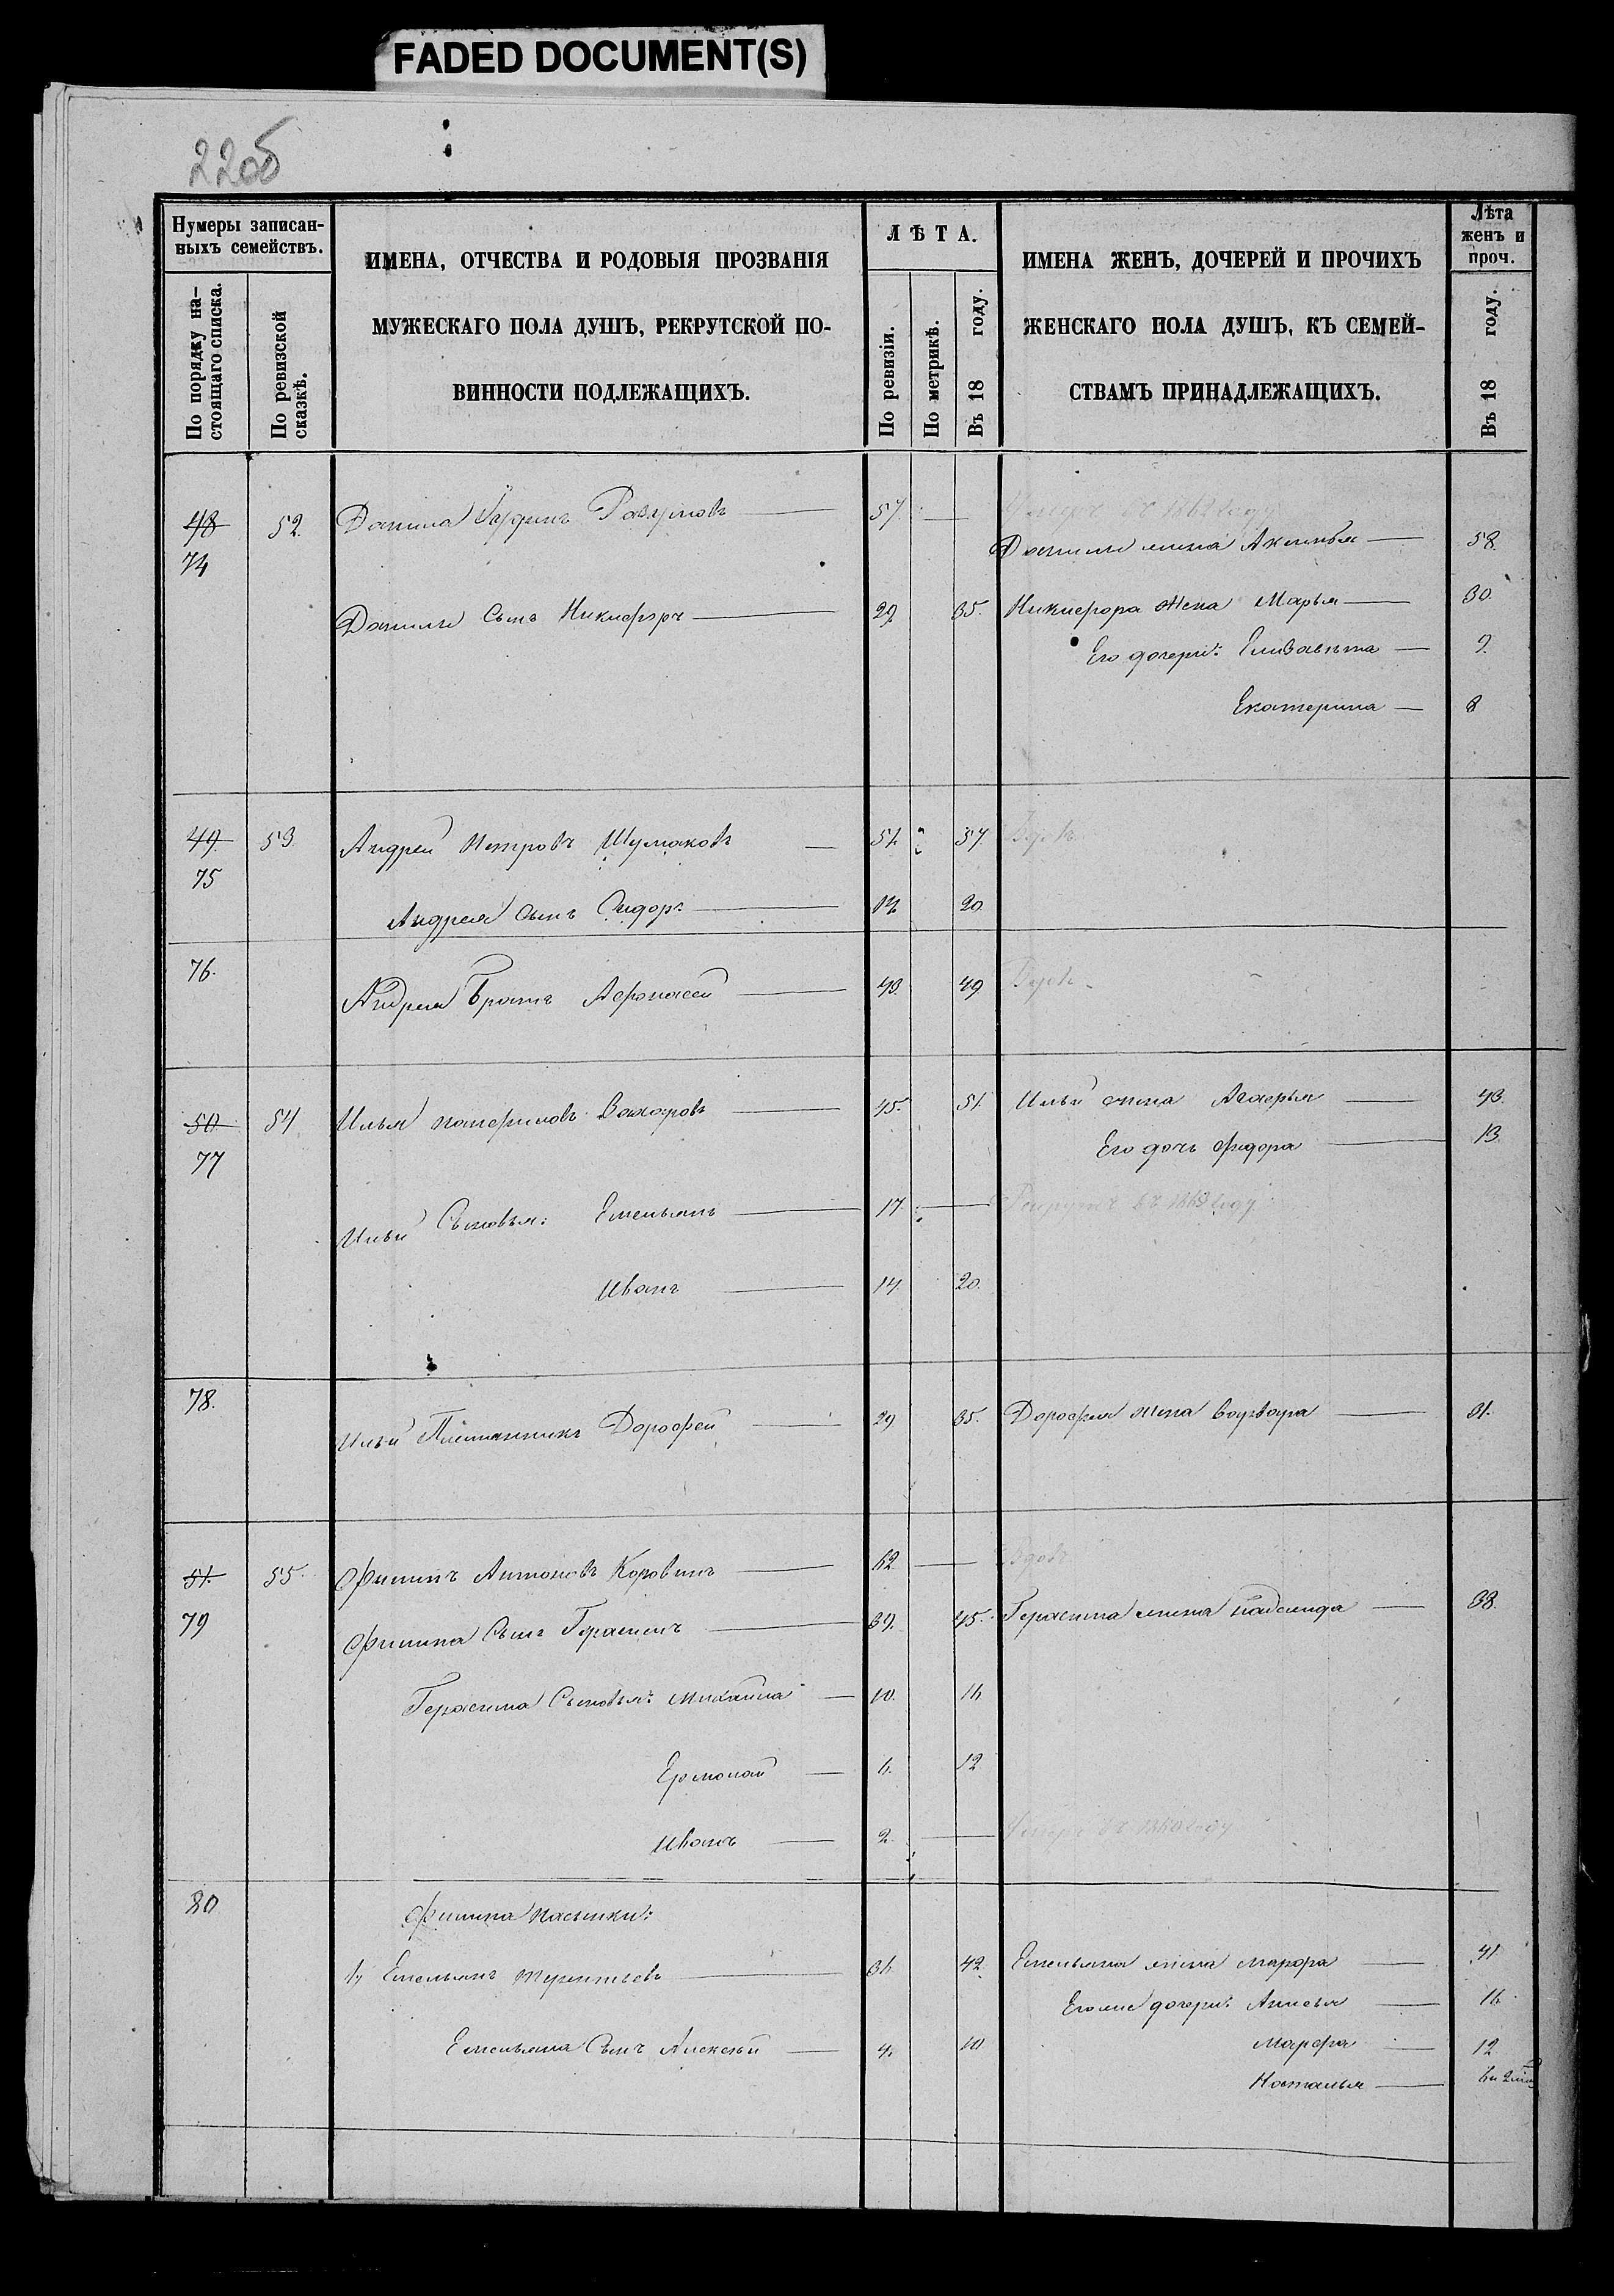 FADED DOCUMENT(S)
22об
Нумеры записан-
ныхъ семействъ.
По порядку на-
стоящаго списка.
По ревизской
сказкѣ.
ИМЕНА, ОТЧЕСТВА И РОДОВЫЯ ПРОЗВАНІЯ
МУЖЕСКАГО ПОЛА ДУШЪ, РЕКРУТСКОЙ ПО-
ВИННОСТИ ПОДЛЕЖАЩИХЪ.
ЛѢТА.
По ревизіи.
По метрикѣ.
Въ 18 году.
ИМЕНА ЖЕНЪ, ДОЧЕРЕЙ И ПРОЧИХЪ
ЖЕНСКАГО ПОЛА ДУШЪ, КЪ СЕМЕЙ-
СТВАМЪ ПРИНАДЛЕЖАЩИХЪ.
Лѣта
женъ и
проч.
Въ 18 году.
48 52. Данила Разумовъ 57. Умеръ въ 1862 году
74 Данилы жена Акилина 58.
Данилы Сынъ Никифоръ 29. 35. Никифора жена Марья 30.
Его дочери: Елизавета 9.
Екатерина 8
49 53. Андрей Петровъ Шумаковъ 51. 57. Вдовъ
75
Андрея Сынъ Сидоръ 14. 20.
76. Андрея Братъ Афонасей 43. 49 Вдовъ
50 54 Илья Панфиловъ Захаровъ 45. 51. Ильи жена 43.
77 Его дочь Фидора 13.
Ильи Сыновья: Емельянъ 17. Рекрутъ въ 1863 году
Иванъ 14. 20.
78. Ильи Племянникъ Дорофей 29 35. Дорофея жена Варвара 31.
51. 55. Филипъ Антоновъ Коровинъ 62 Вдовъ
79 Филипа Сынъ Герасимъ 39. 45. Герасима жена 38.
Герасима Сыновья: Михайла 10. 16
Ермолай 6. 12
Иванъ 2. Умеръ въ 1860 году
80 Филипа Пасынки:
1, Емельянъ Терентьевъ 36. 42. Емельяна жена Марфа 41.
Его же дочери: Анисья 16.
Емельяна Сынъ Алексѣй 4. 10 Марфа 12
Наталья 6 и 2